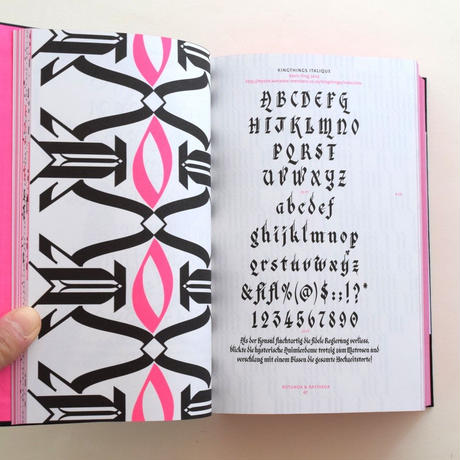 KINGTHINGS ITALIQUE
ABCDEFG
HIJKLMNO
PQRST
UVWXYZ
abcdef
ghijklmnop
qrstuvwxyz
&fifl%(@)$:;!?*
1234567890
Als der Konsul fluchtartig die fidele Regierung verliess,
blickte die hysterische Quimierdame trotzig zum Matrosen und
verschlang mit einem Bissen die gesamte Hochzeitstorte!
ROTUNDA & BASTARDA